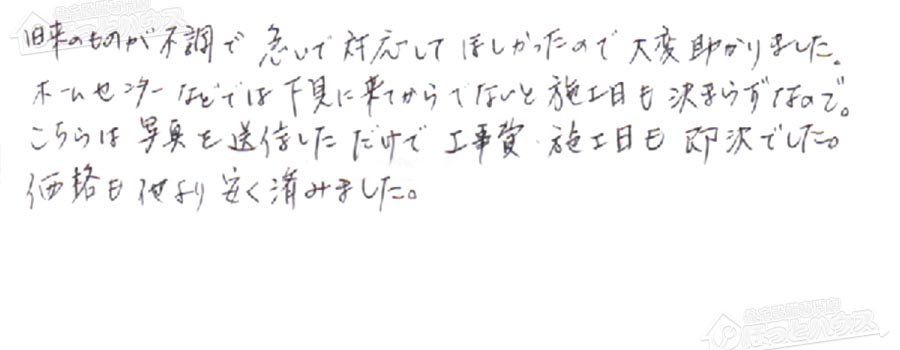 旧来のものが不調で 急いで対応してほしかったので大変助かりました。
ホームセンターなどでは下見に来てからでないと施工日も決まらずなので。
こちらは写真を送信しただけで工事費・施工日も即決でした。
価格も他より安く済みました。
ほっとハウス